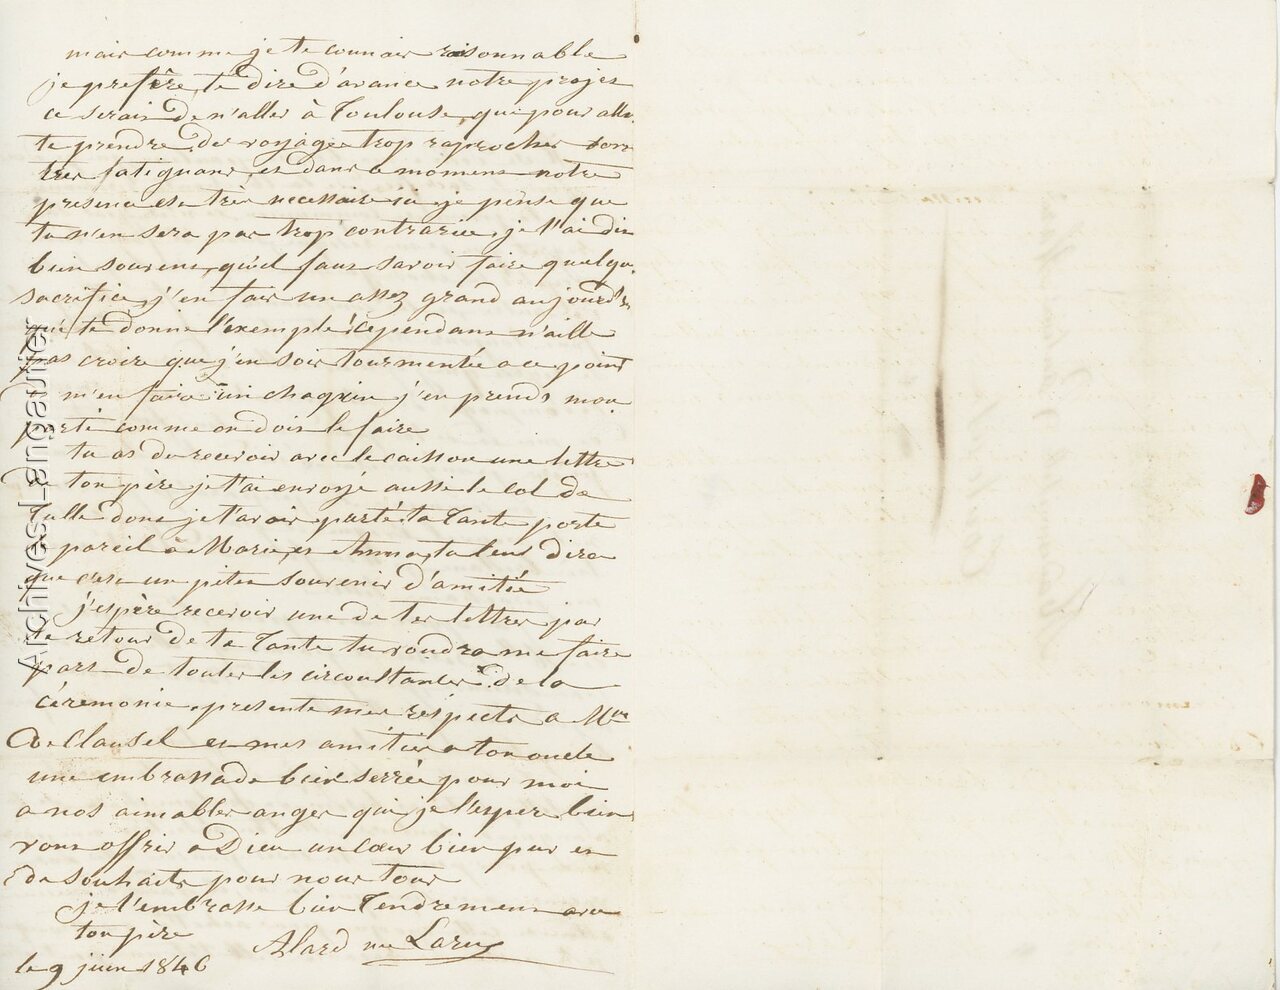 mais comme je te connais raisonnable
je prefère te dire d'avance notre projet
ce serait de n'aller à Toulouse que pour aller
te prendre, des voyages trop raprocher sont
tres fatiguant, et dans ce moment notre
presence est très necessaire ici, je pense que
tu n'en sera pas trop contrariée, je t'ai dit
bien souvent, qu'il faut savoir faire quelque
sacrifice, j'en fait un assez grand aujourd'h
qui te donne l'exemple, cependant n'aille
pas croire que j'en soit tourmentée a ce point
de m'en faire un chagrin j'en prends mon
parti comme on doit le faire
tu as du recevoir avec le caisson une lettre
de ton père je t'ai envoyé aussi le col de
Tulle dont je t'avais parlé, ta Tante porte
le pareil à Marie, et Anna, tu leur dira
que c'est un petit souvenir d'amitié
j'espère recevoir une de tes lettres par
le retour de ta Tante tu voudra me faire
part de toutes les circonstances de la
cérémonie, presente mes respects a Mme
de Clausel et mes amitiés a ton oncle
une embrassade bien serrée pour moi
a nos aimables anges qui je l'espere bien
vont offrir a Dieu un cœur bien pur et
des souhaits pour nous tous
je t'embrasse bien Tendrement avec
ton père
Alard née Larey
le 9 juin 1846
Archives Langautier